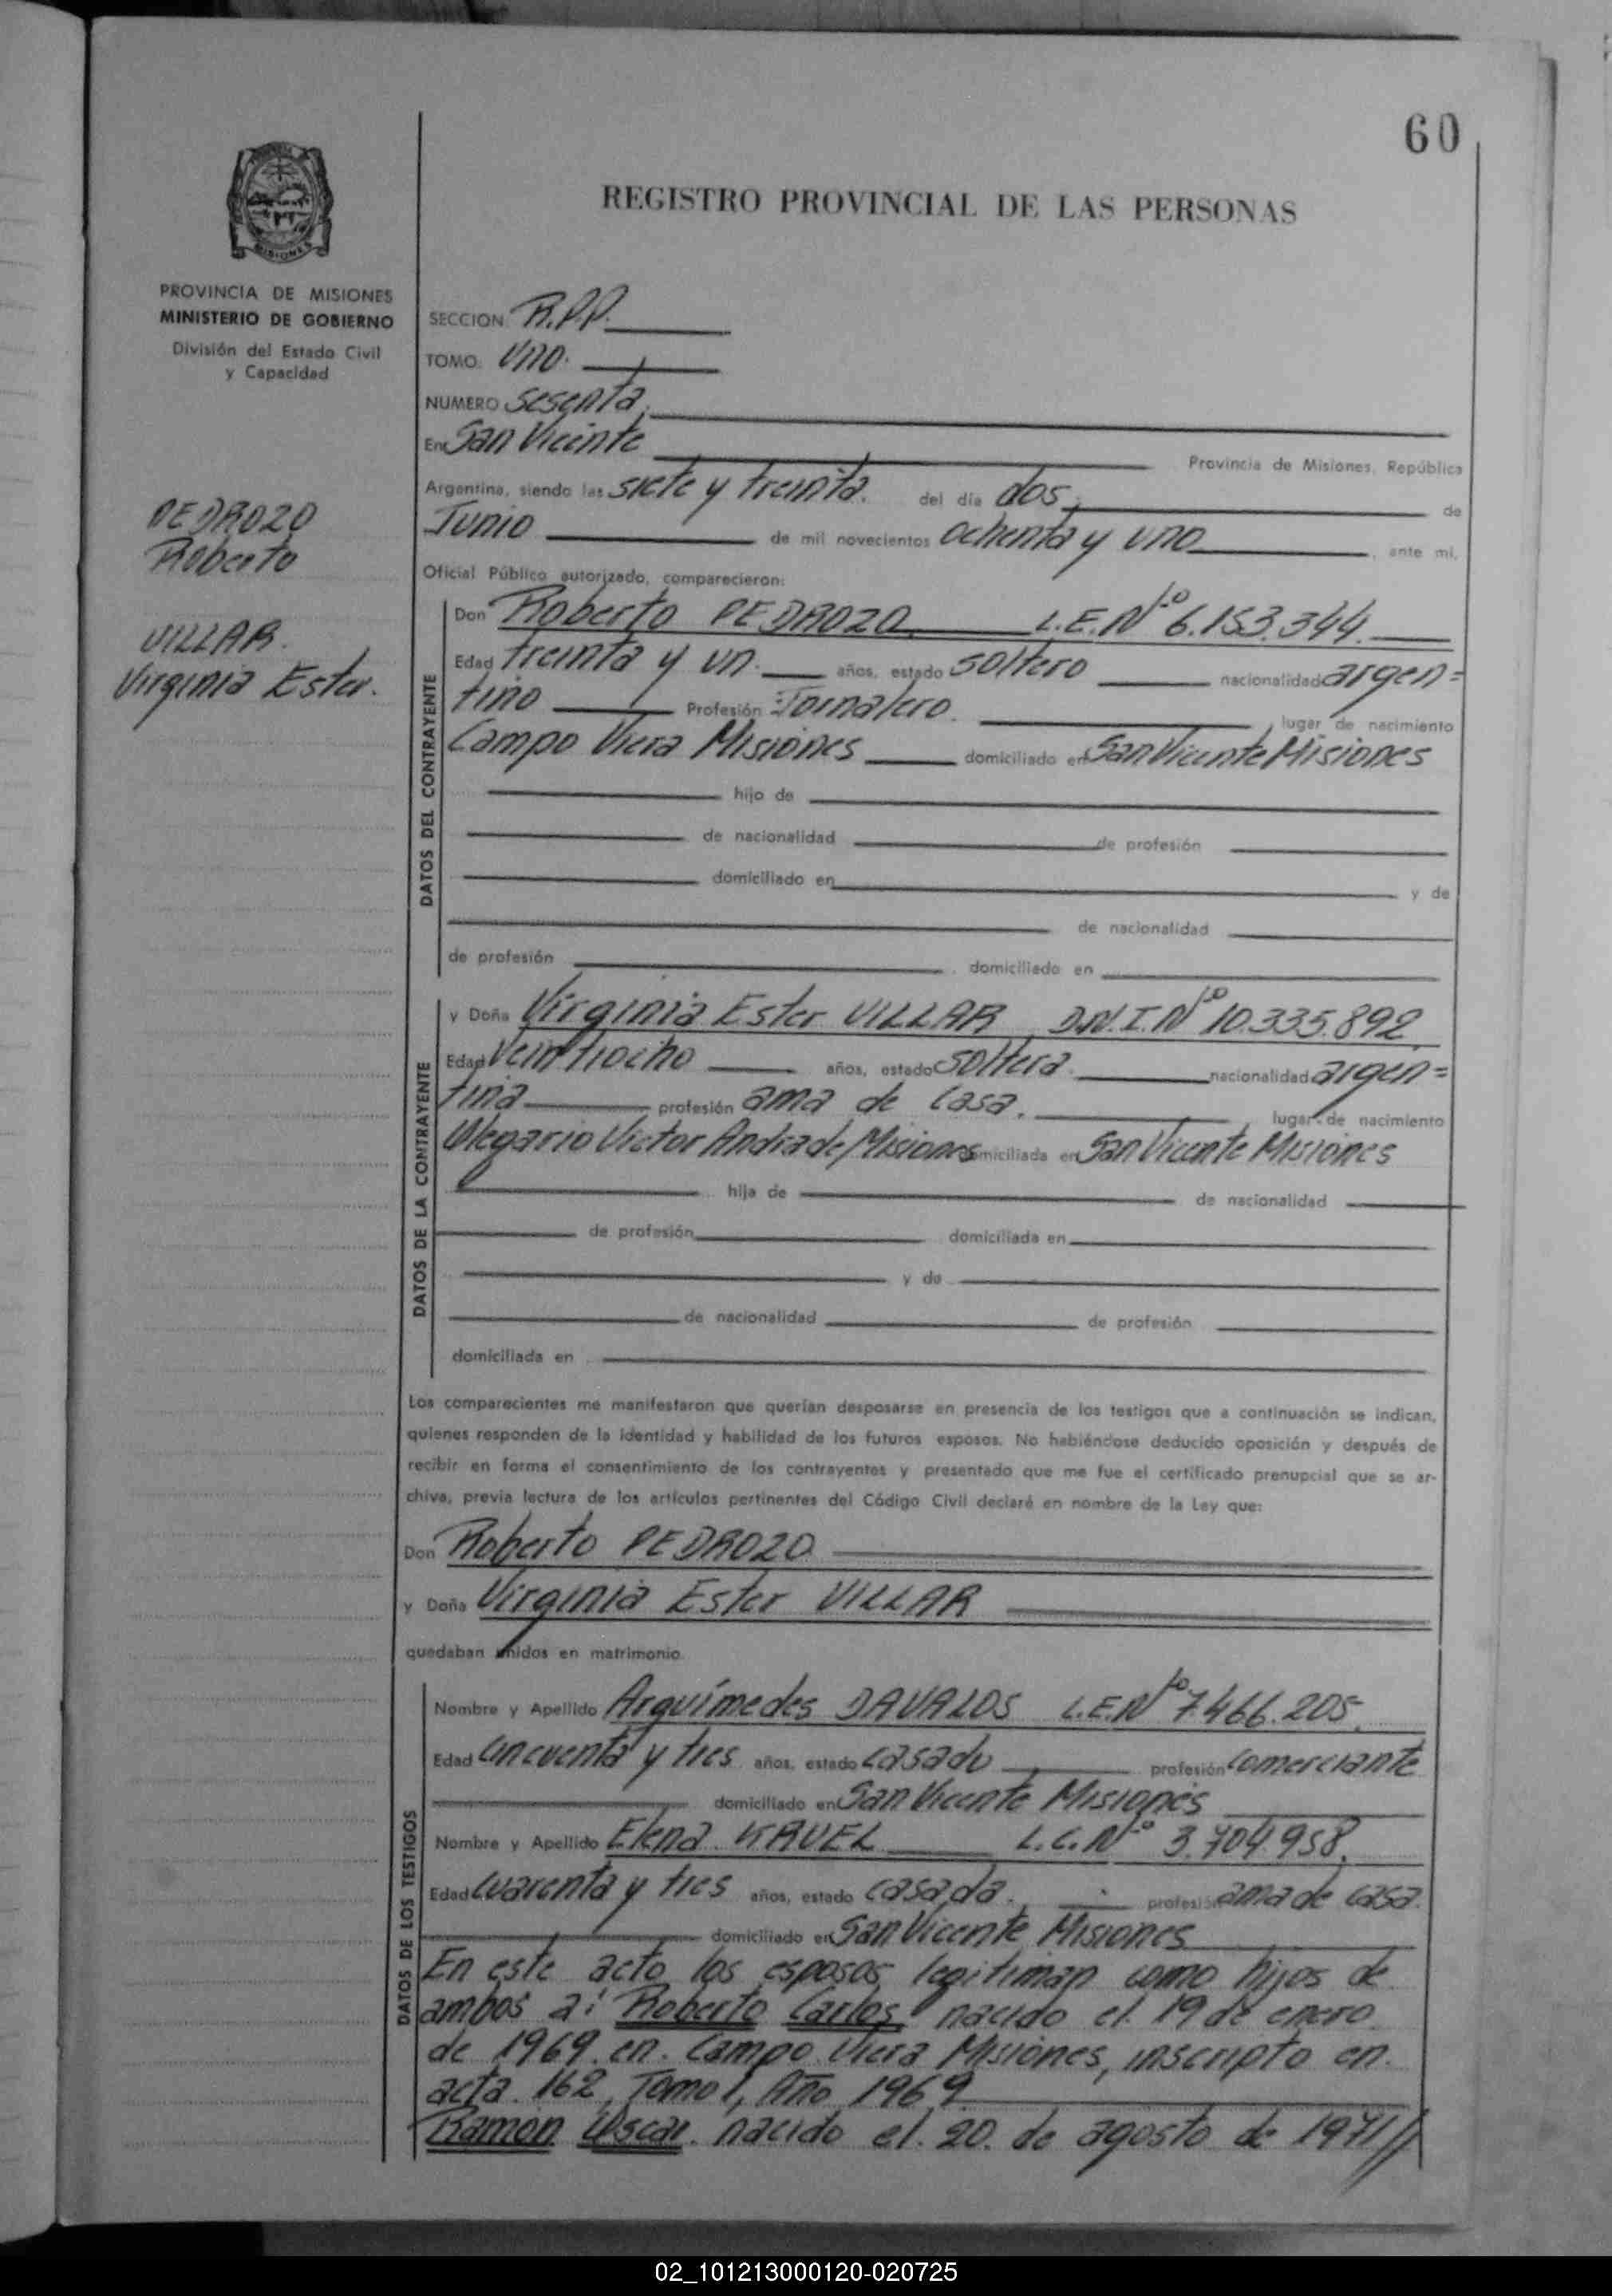 60
REGISTRO PROVINCIAL DE LAS PERSONAS
MISIONES
PROVINCIA DE MISIONES
MINISTERIO DE GOBIERNO
División del Estado Civil
y Capacidad
PEDROZO
Roberto
VILLAR.
Virginia Ester.
SECCION R.P.P.
TOMO Uno.
NUMERO Sesenta.
En San Vicente Provincia de Misiones, República
Argentina, siendo las siete y treinta. del día dos, de
Junio de mil novecientos ochenta y uno, ante mi,
Oficial Público autorizado, comparecieron:
DATOS DEL CONTRAYENTE
Don Roberto PEDROZO L.E.Nº 6.153.344.
Edad treinta y un. años, estado soltero nacionalidad argen=
tino Profesión Jornalero. lugar de nacimiento
Campo Viera Misiones domiciliado en San Vicente Misiones
hijo de
de nacionalidad de profesión
domiciliado en y de
de nacionalidad
de profesión domiciliado en
DATOS DE LA CONTRAYENTE
y Doña Virginia Ester VILLAR D.N.I.Nº 10.335.892.
Edad veintiocho años, estado soltera. nacionalidad argen=
tina profesión ama de casa. lugar de nacimiento
Olegario Victor Andrade Misiones domiciliada en San Vicente Misiones
hija de de nacionalidad
de profesión domiciliada en
y de
de nacionalidad de profesión
domiciliada en
Los comparecientes me manifestaron que querían desposarse en presencia de los testigos que a continuación se indican,
quienes responden de la identidad y habilidad de los futuros esposos. No habiéndose deducido oposición y después de
recibir en forma el consentimiento de los contrayentes y presentado que me fue el certificado prenupcial que se ar-
chiva, previa lectura de los artículos pertinentes del Código Civil declaré en nombre de la Ley que:
Don Roberto PEDROZO
y Doña Virginia Ester VILLAR
quedaban unidos en matrimonio.
DATOS DE LOS TESTIGOS
Nombre y Apellido Arquímedes DAVALOS L.E.Nº 7.466.205.
Edad cincuenta y tres años, estado casado profesión comerciante
domiciliado en San Vicente Misiones
Nombre y Apellido Elena KRUEL L.C.Nº 3.704.958.
Edad cuarenta y tres años, estado casada. profesión ama de casa.
domiciliado en San Vicente Misiones
En este acto los esposos legitiman como hijos de
ambos a: Roberto Carlos nacido el 19 de enero.
de 1969. en. Campo Viera Misiones, inscripto en.
acta. 162, Tomo 1, Año 1969.
Ramón Oscar. nacido el. 20. de agosto de 1971//
02_101213000120-020725